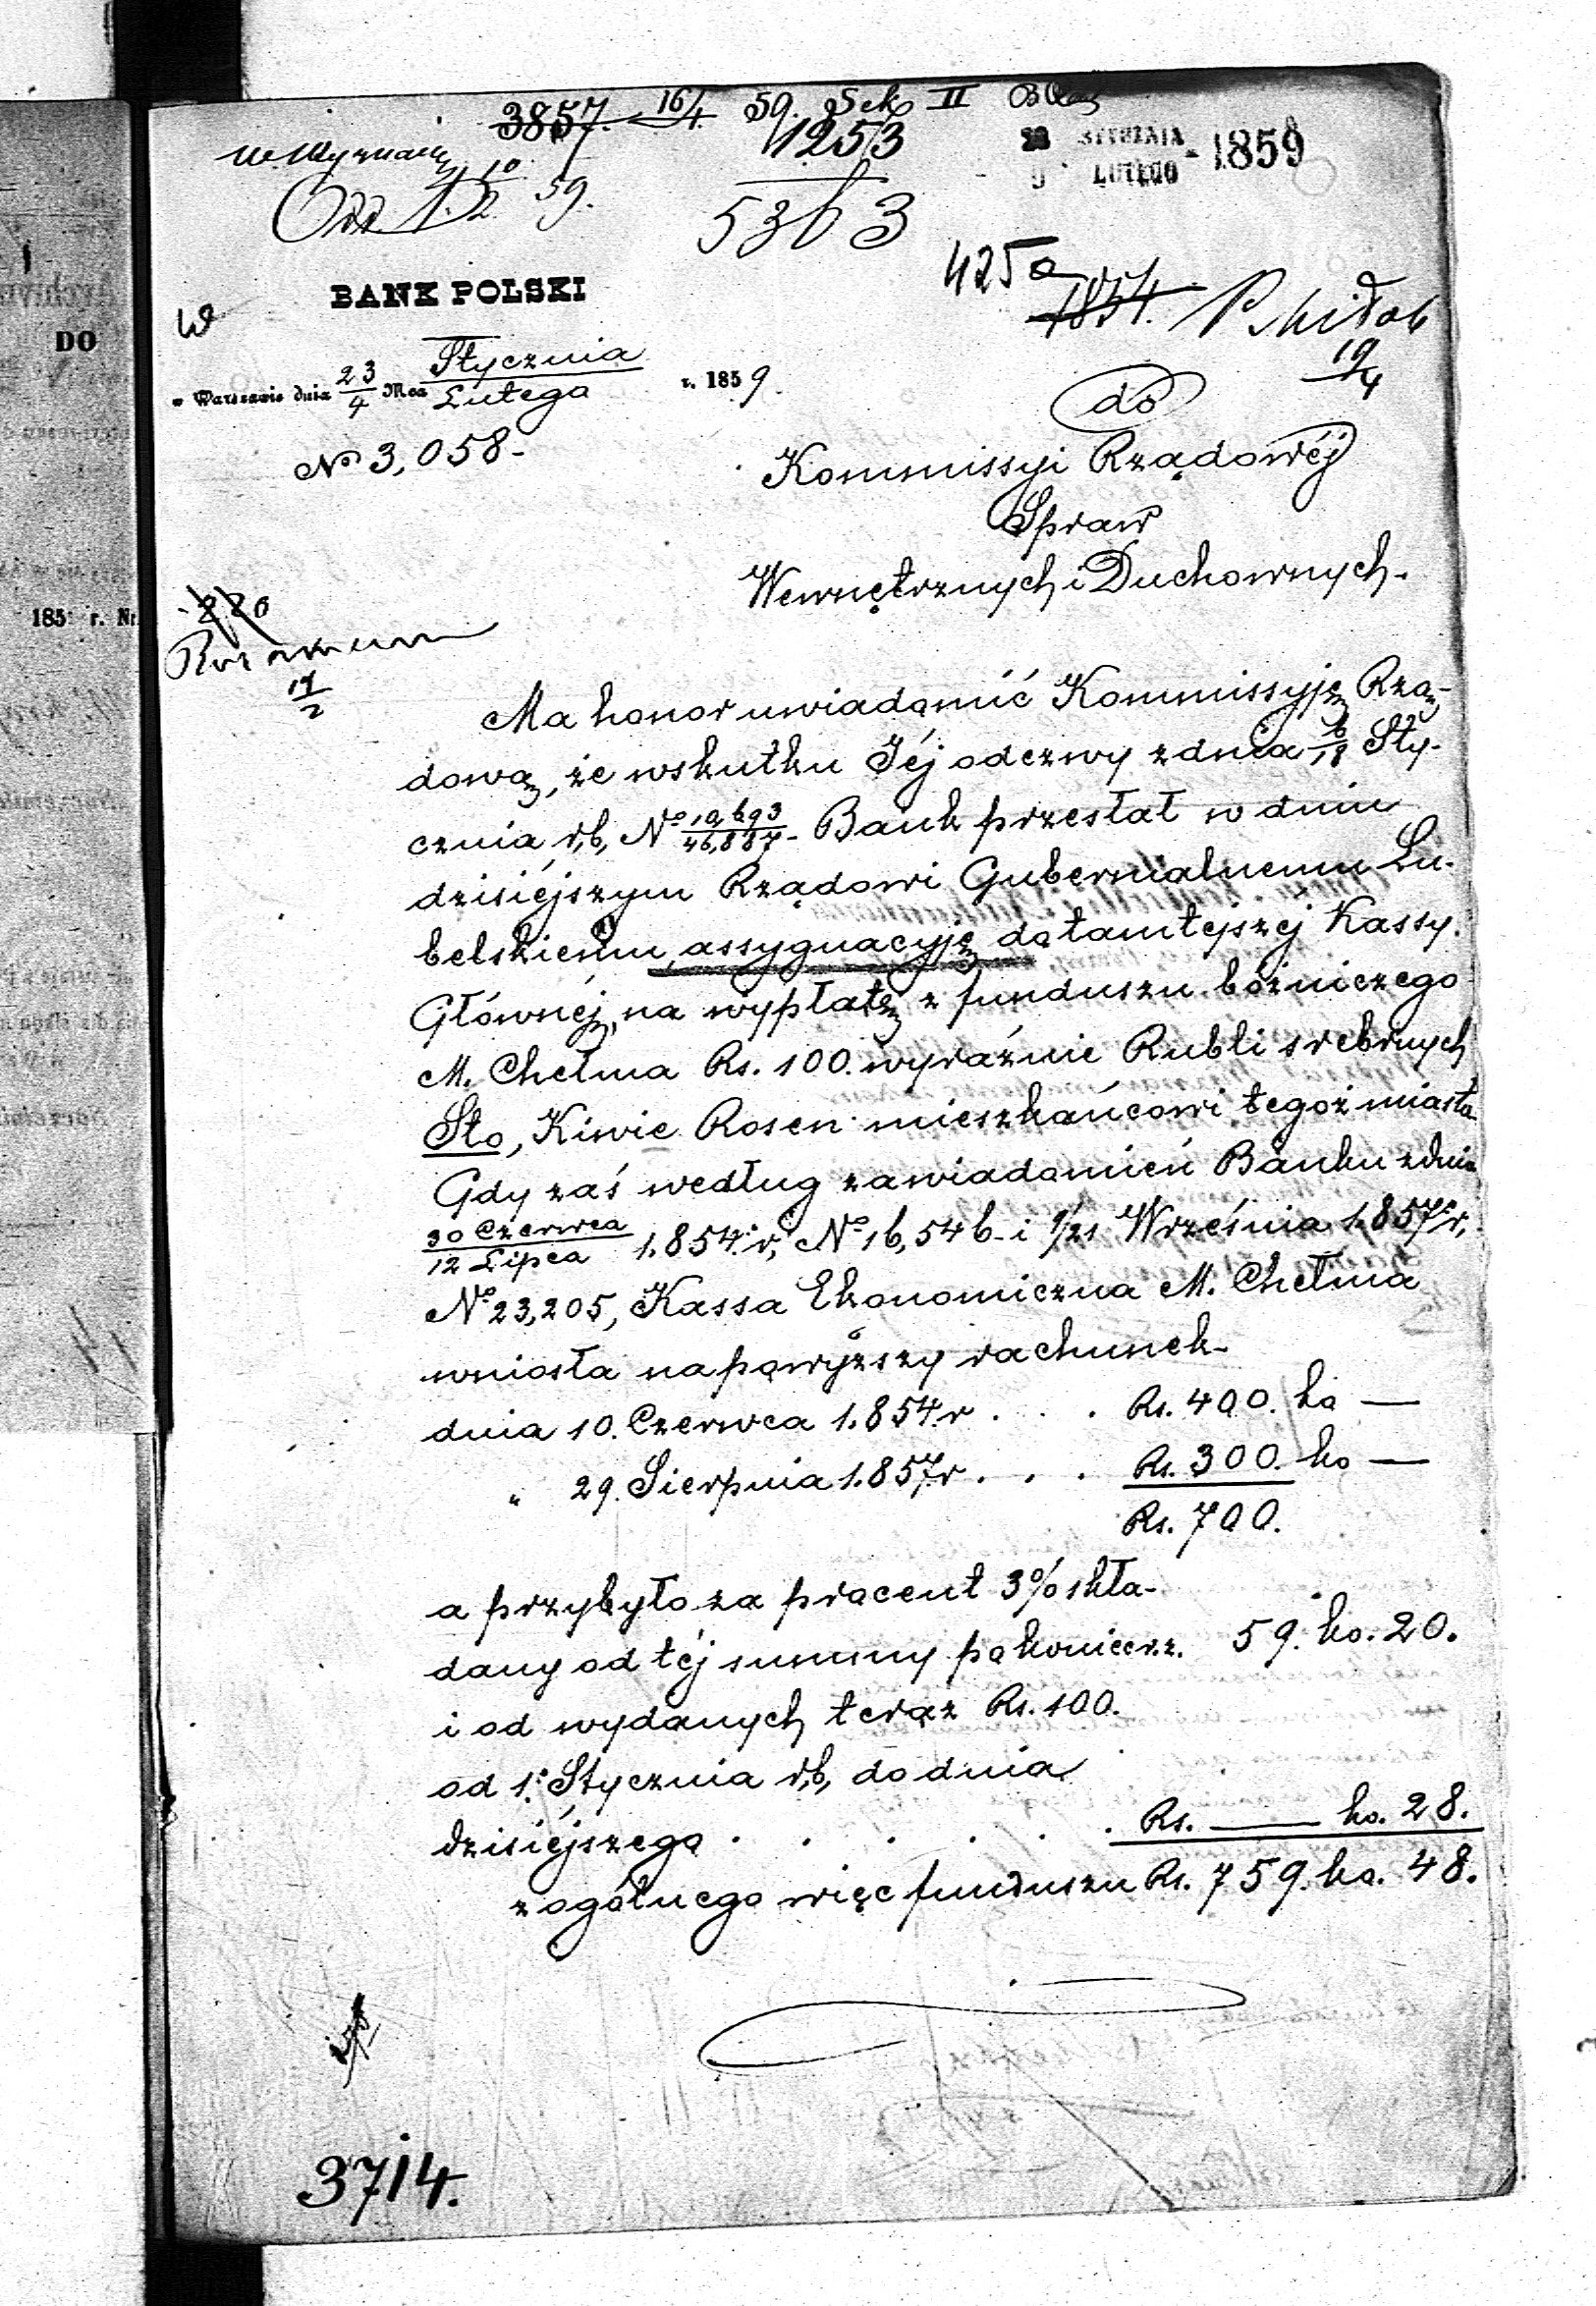 3857. 16/4 59. Sek II
1253
28 STYCZNIA
9 LUTEGO 1859
W Wyznań
10/2 59.
5363
BANK POLSKI
425
1854.
W
19/4
w Warszawie dnia 23/4 Mca Stycznia/Lutego r. 1859.
do
No 3,058-
Kommissyi Rządowéj
Spraw
Wewnętrznych i Duchownych.
DO
185 r. Nr.
220
17/2
Ma honor uwiadomić Kommissyję Rzą-
dową, że wskutku Jéj odezwy z dnia 6/18 Sty-
cznia r,b, No 10,693/46,887- Bank przesłał w dniu
dzisiéjszym Rządowi Gubernialnemu Lu-
belskiemu, assygnacyję do tamtejszéj Kassy
Głównéj, na wypłatę z funduszu bóżniczego
M. Chełma Rs. 100. wyraźnie Rubli srebrnych
Sto, Kiwie Rosen mieszkańcowi tegoż miasta
Gdy zaś według zawiadomień Banku z dnia
30 Czerwca/12 Lipca 1.854. r, No 16,546- i 9/21 Września 1.857. r,
No 23,205, Kassa Ekonomiczna M. Chełma
wniosła na powyższy rachunek-
dnia 10. Czerwca 1.854. r . . . Rs. 400. ko —
" 29. Sierpnia 1.857. r . . . Rs. 300. ko —
Rs. 700.
a przybyło za procent 3% skła-
dany od téj summy po koniec r.z. 59. ko. 20.
i od wydanych teraz Rs. 100.
od 1. Stycznia r,b, do dnia
dzisiéjszego . . . . . . Rs. — ko. 28.
z ogólnego więc funduszu Rs. 759. ko. 48.
3714.